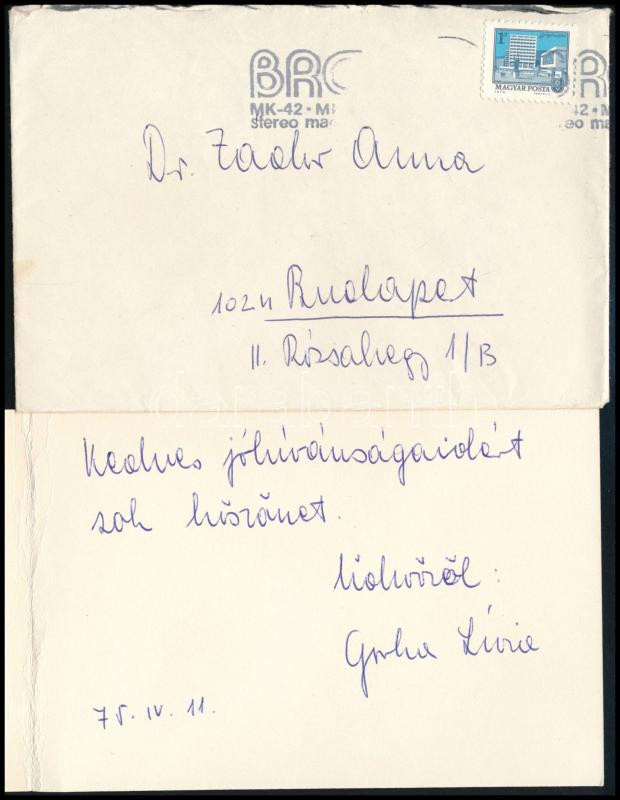 BRG
MK-42 • M
stereo ma
1Ft
MAGYAR POSTA
RG
42 • M
eo ma
Dr. Zador Anna
1024 Budapest
II. Rózsahegy 1/B
darabanth
Kedves jókívánságaidért
sok köszönet.
Üdvözöl:
Gorka Lívia
75. IV. 11.